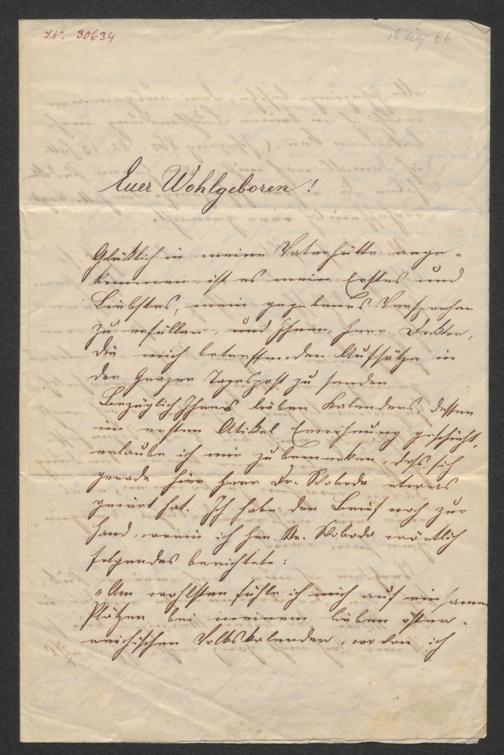 I.N. 30634
Aug 66
Euer Wohlgeboren!
Glücklich in meine Vaterhütte ange-
kommen ist es mein Erstes und
Liebstes, mein gegebenes Versprechen
zu erfüllen, und Ihnen, Herr Doktor,
die mich betreffenden Aufsätze in
der Grazer Tagespost zu senden
Bezüglich Ihres lieben Kalenders, dessen
im ersten Atikel Erwähnung geschieht,
erlaube ich mir zu bemerken, dass sich
gerade hier Herr Dr. Svoboda etwas
geirrt hat. Ich habe den Brief noch zur
Hand, worin ich Hrn. Dr. Svoboda wörtlich
folgendes berichtete:
"Am wohlsten fühle ich mich auf einsamen
Plätzen bei meinem lieben öster-
reichischen Volkskalender, wovon ich